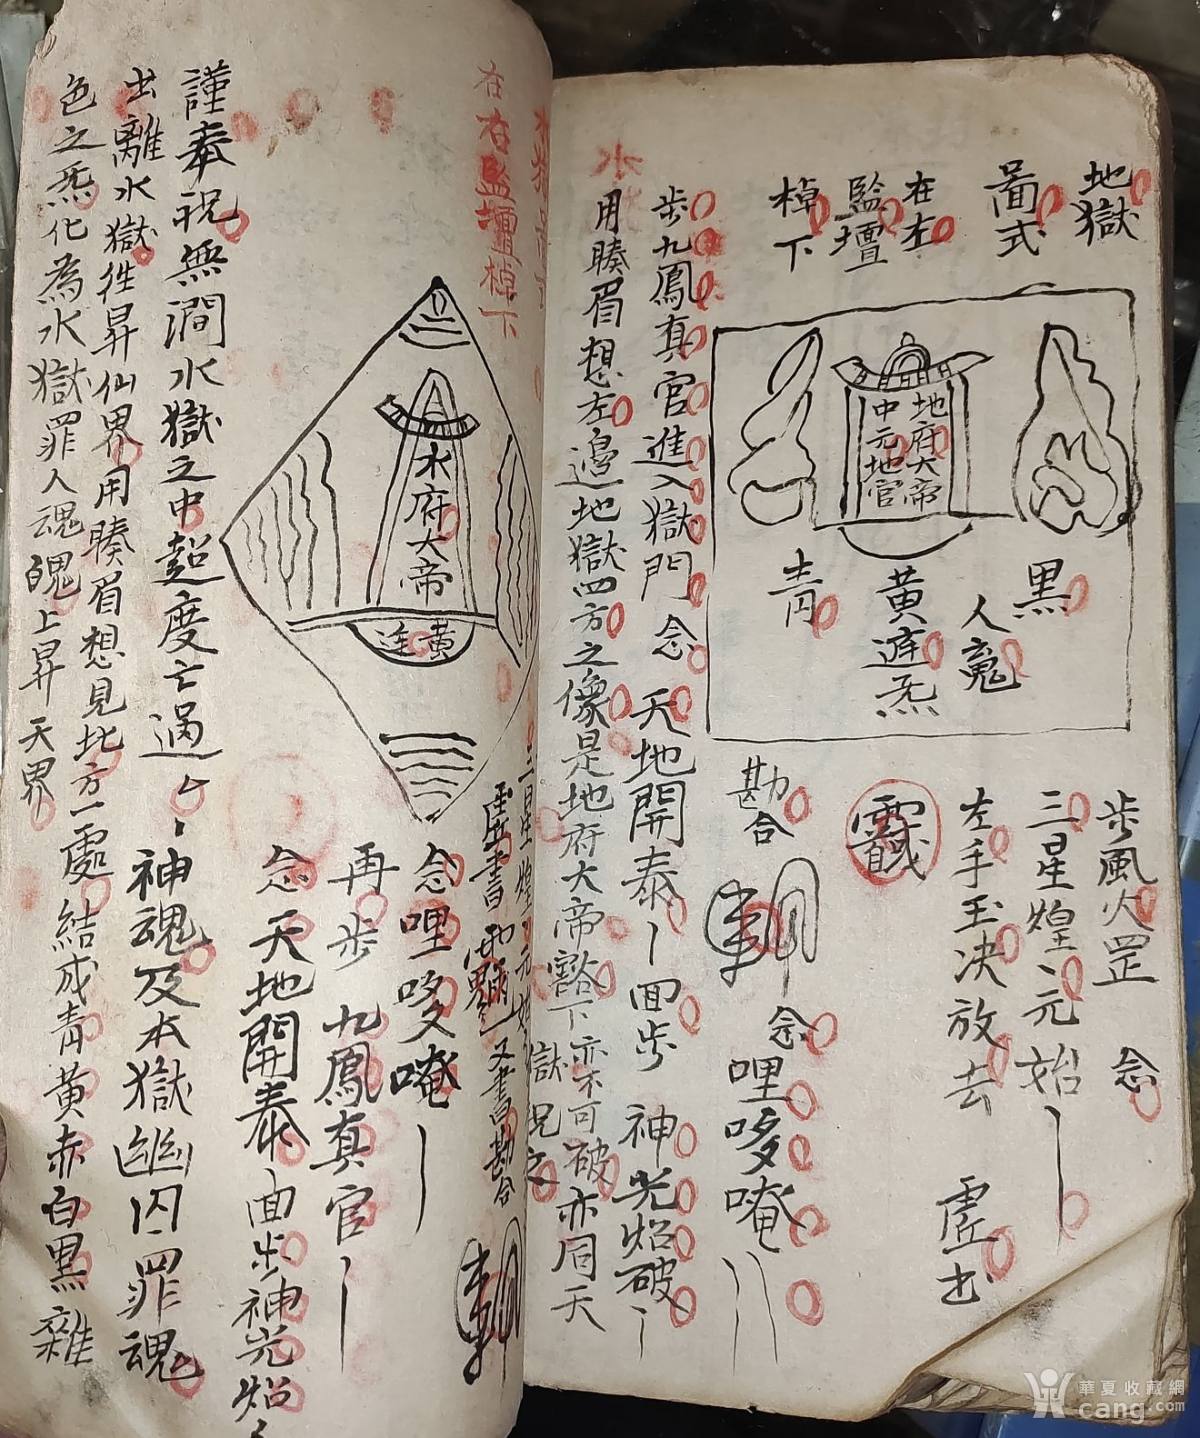 地獄
啚式
在左
監壇
棹下
黑
人
地府大帝
中元地官
黃
青
步風火罡 念
三星煌〻元始
左手玉决放去 虛出
勘合
念哩哆唵
步九鳳真官進入獄門念 天地開泰 回步 神光焰破
用睠眉想左邊地獄四方之像是地府大帝豁下亦不可破亦同天
獄
水
在右監壇棹下
水府大帝
黃
三星煌〻元始
虛書
又書勘合
念哩哆唵
再步 九鳳真官
念天地開泰 面步神光焰
謹奉祝無澗水獄之中超度亡過 神魂及本獄幽囚罪魂
出離水獄徃昇仙界用睠眉想見北方一處結成青黃赤白黑雜
色之炁化為水獄罪人魂魄上昇天界
華夏收藏網
cang.com